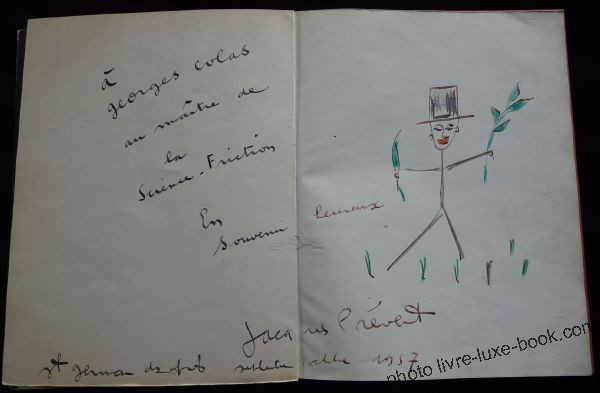 à
georges Colas
au maître de
la
Science-Friction
En
Souvenir heureux
Jacques Prévert
St Germain des prés septembre octobre 1957
photo livre-luxe-book.com